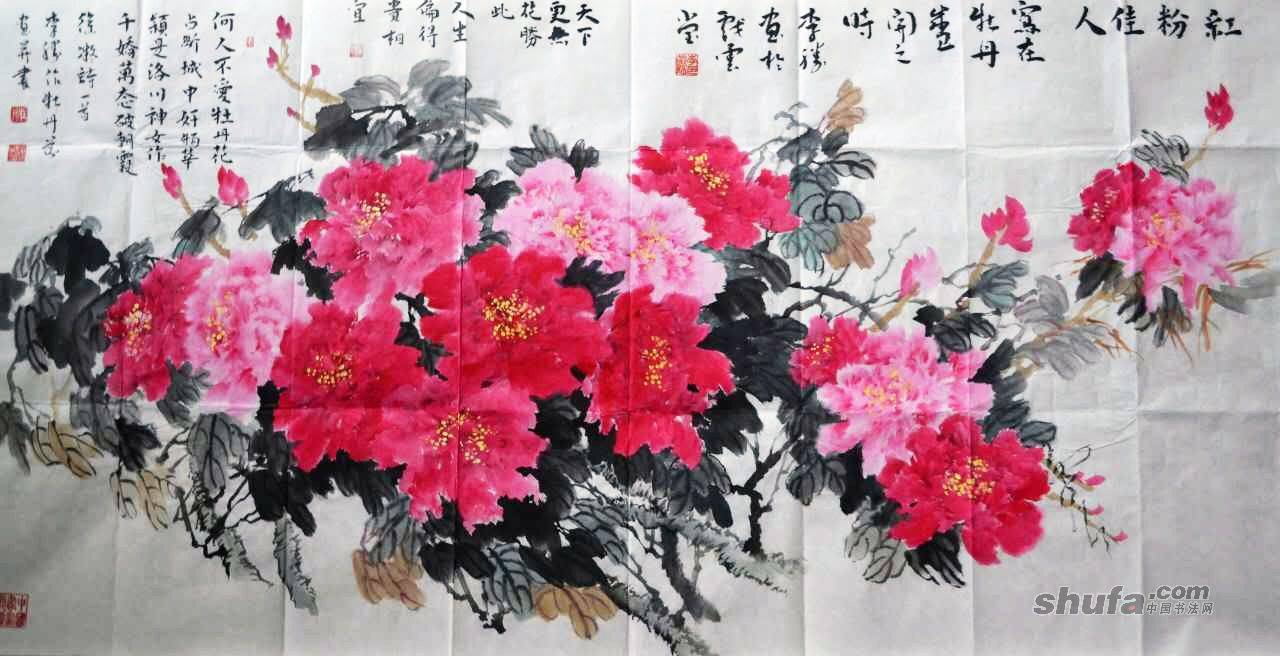 紅
粉
佳
人
寫在
牡丹
盛
開之
時
李勝
畫於
雲
堂
天下
更無
花勝
此
人生
偏得
貴相
宜
何人不愛牡丹花
占斷城中好物華
疑是洛川神女作
千嬌萬态破朝霞
徐凝詩一首
李勝作牡丹
畫并書
shufa.com
中国书法网